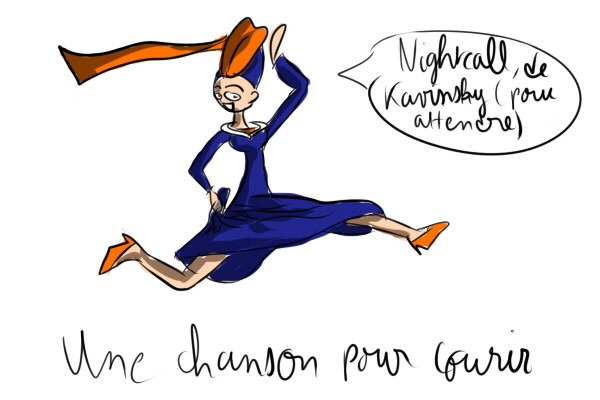 Nightcall, de
Kavinsky (pour
attendre)
Une chanson pour courir